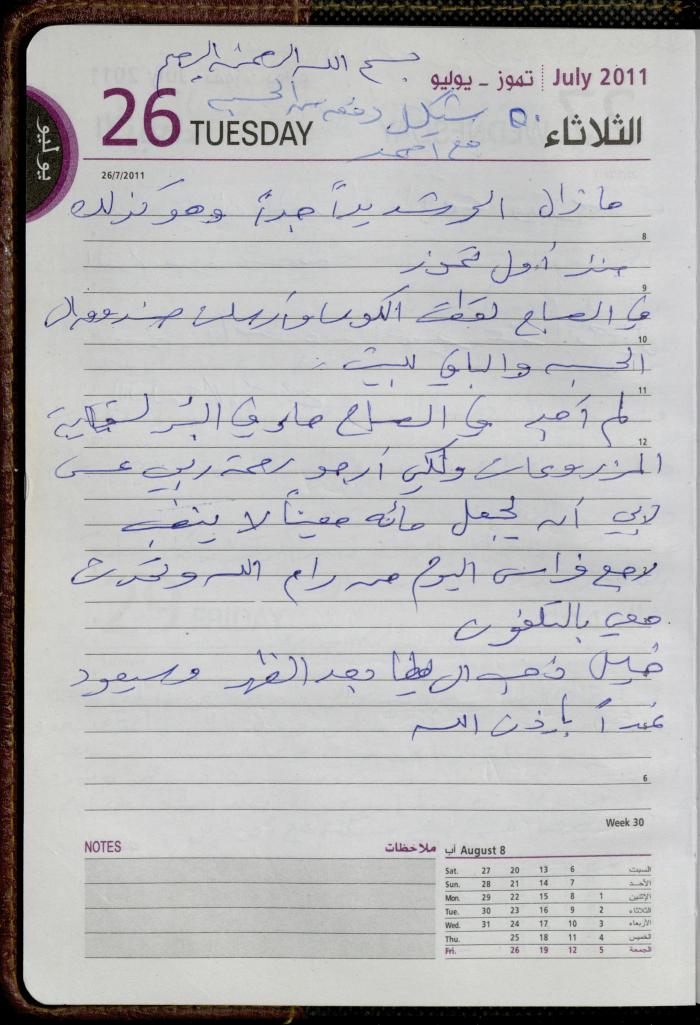 بسم الله الرحمن الرحيم
July 2011 تموز ـ يوليو
26 TUESDAY الثلاثاء
يوليو
٥٠ شيكل دفعه من الحسبه
مع احمد
26/7/2011
ما زال الحر شديداً جداً وهو كذلك
8
منذ أول تموز
9
في الصباح لقطت الكوسا وأرسلت صندوق ال
10
الحسبه والباقي للبيت
11
لم أجد في الصباح ماء في البئر لسقاية
12
المزروعات ولكني أرجو رحمة ربي عسى
ربي أن يجعل مائه معيناً لا ينضب
رجع فراس اليوم من رام الله وتحدث
معي بالتلفون
خليل ذهب ال بعد الظهر وسيعود
غداً بإذن الله
6
Week 30
NOTES ملاحظات
August 8 آب
Sat. 27 20 13 6 السبت
Sun. 28 21 14 7 الأحد
Mon. 29 22 15 8 1 الإثنين
Tue. 30 23 16 9 2 الثلاثاء
Wed. 31 24 17 10 3 الأربعاء
Thu. 25 18 11 4 الخميس
Fri. 26 19 12 5 الجمعة